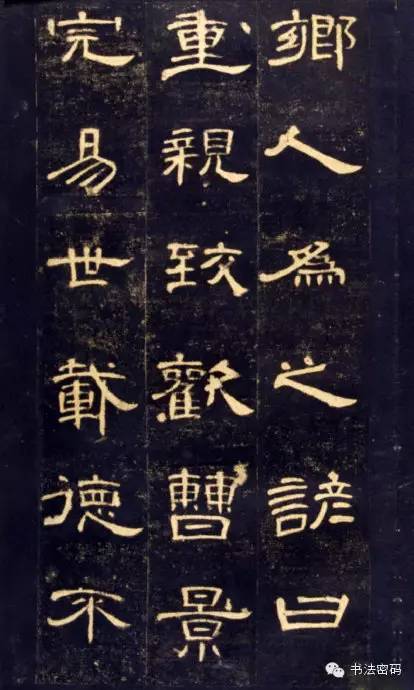 鄉人為之諺曰
重親致歡曹景
完易世載德不
书法密码